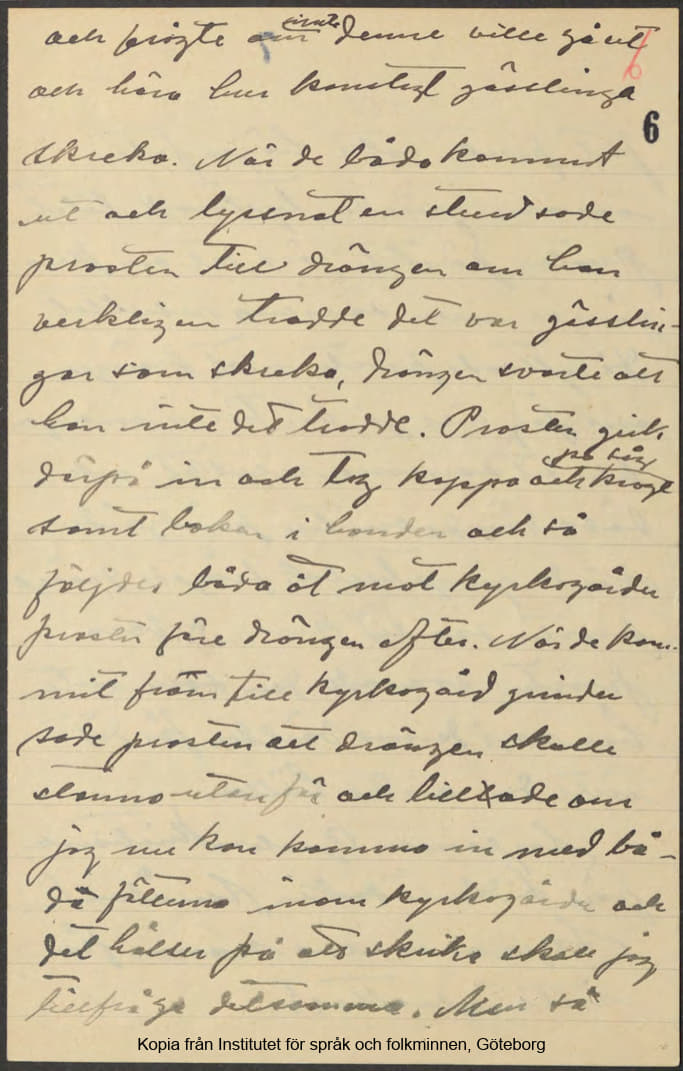 inte
och frågte om denne ville gå ut
och höra hur konstigt gässlinga
6
skreko. När de båda kommit
ut och lyssnat en stund sade
prosten till drängen om han
verkligen trodde det var gässlin-
gar som skreko, drängen svarte att
han inte det trodde. Prosten gick
på sig
därpå in och tog kappa och krage
samt boken i handen och så
följdes båda åt mot kyrkogården
prosten före drängen efter. När de kom-
mit fram till kyrkogård grinden
sade prosten att drängen skulle
stanna utanför och tillade om
jag nu kan komma in med bå-
da fötterna inom kyrkogården och
det håller på att skrika skall jag
tillfråga detsamma. Men så
Kopia från Institutet för språk och folkminnen, Göteborg